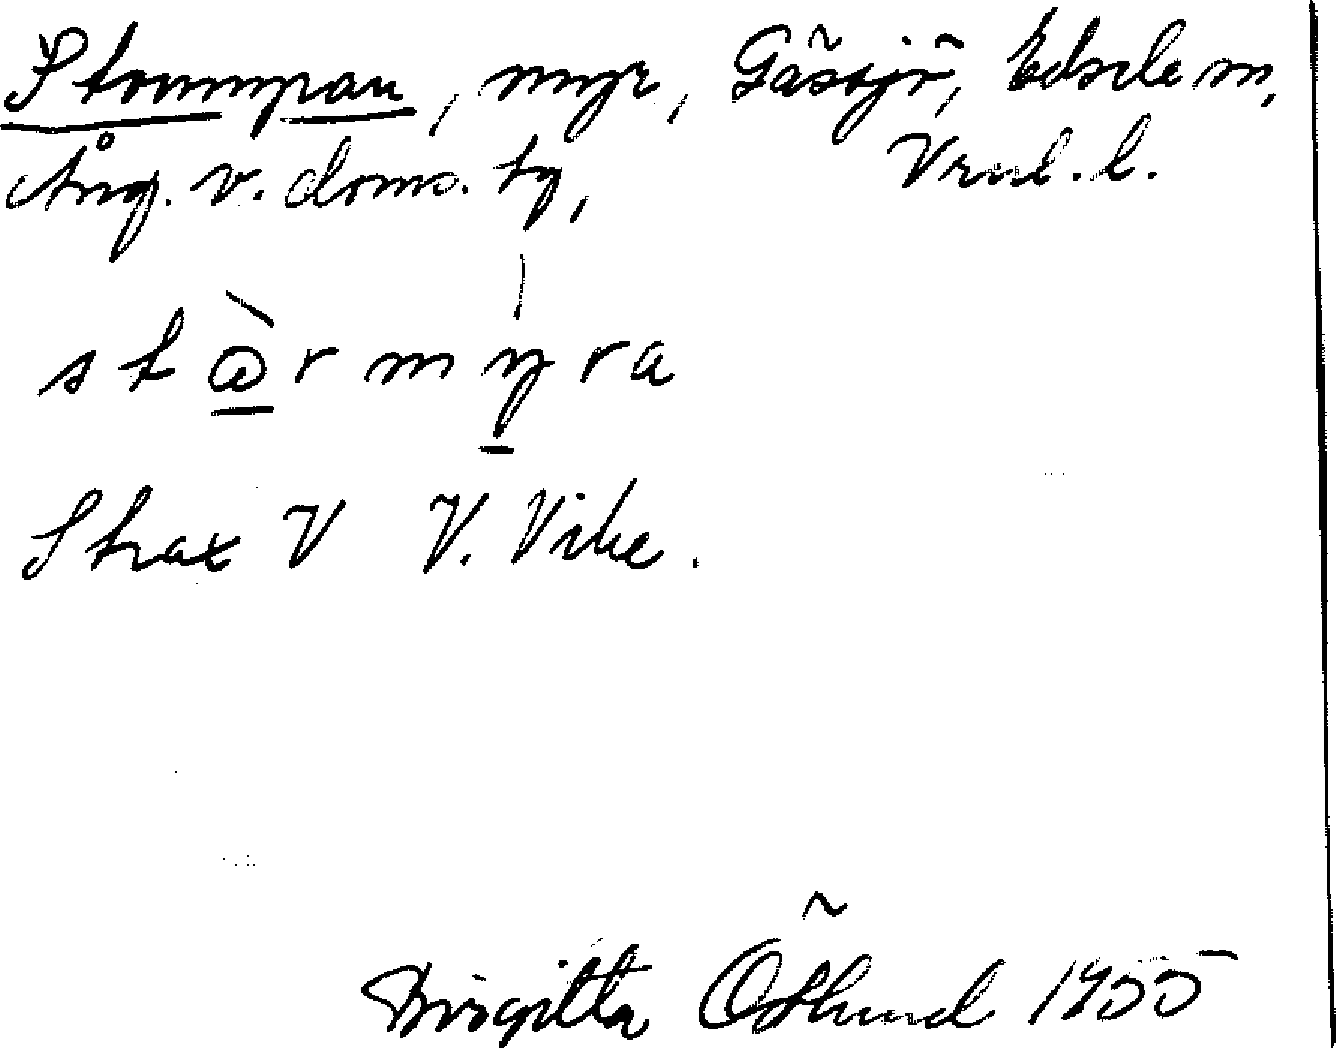 Stormyran, myr, Gåssjö, Edsele sn,
Ång. v. doms. tg, Vrnl. l.
stὼrmyra
Strax V V. Vike.
Birgitta Östlund 1955